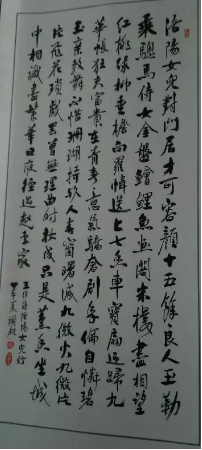 洛陽女兒對門居才可容顏十五餘良人玉勒
乘驄馬侍女金盤鱠鯉魚畫閣朱樓盡相望
紅桃綠柳垂檐向羅幃送上七香車寶扇迎歸九
華帳狂夫富貴在青春意氣驕奢劇季倫自憐碧
玉親教舞不惜珊瑚持與人春窗曙滅九微火九微片
片飛花瑣戲罷曾無理曲時妝成只是薰香坐城
中相識盡繁華日夜經過趙李家
王維詩洛陽女兒行